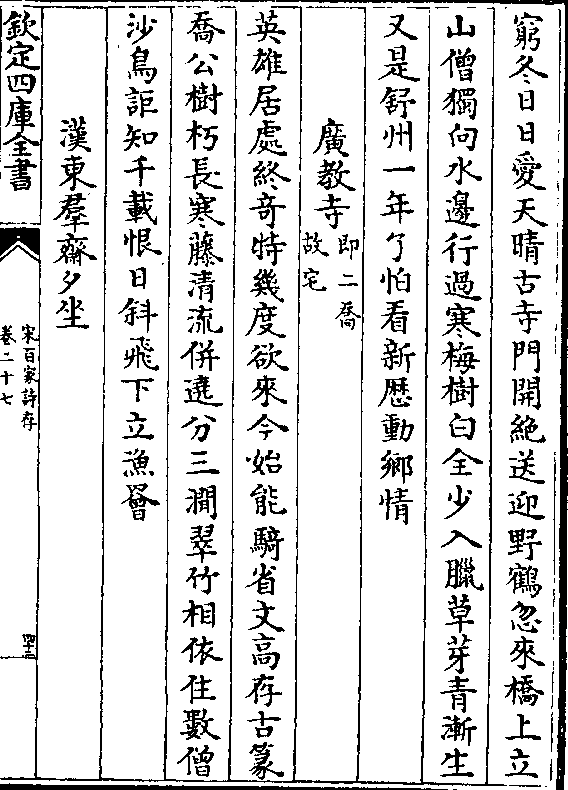 窮冬日日愛天晴古寺門開絶送迎野鶴忽來橋上立
山僧獨向水邊行過寒梅樹白全少入臘草芽青漸生
又是舒州一年了怕看新歴動鄉情
廣教寺即二喬故宅
英雄居處終奇特幾度欲來今始能騎省文高存古篆
喬公樹朽長寒藤清流併遶分三澗翠竹相依住數僧
沙鳥詎知千載恨日斜飛下立漁罾
漢東羣齋夕坐
欽定四庫全書
宋百家詩存
卷二十七